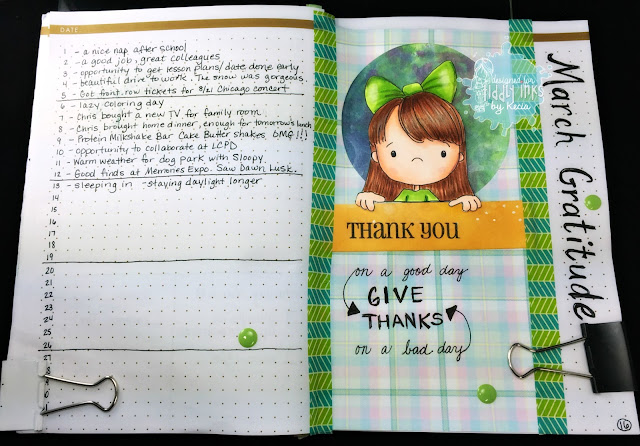 DATE:
1 - a nice nap after school
2 - a good job, great colleagues
3 - opportunity to get lesson plans/date done early
4 - beautiful drive to work. The snow was gorgeous.
5 - Got font row tickets for 8/21 Chicago concert
6 - lazy coloring day
7 - Chris bought a new TV for family room
8 - Chris brought home dinner, enough for tomorrow's lunch
9 - Protein Milkshake Bar Cake Butter shakes OMG!!!
10 - opportunity to collaborate at LCPD.
11 - Warm weather for dog park with Sloopy.
12 - Good finds at Memories Expo. Saw Dawn Lusk.
13 - sleeping in - staying daylight longer
14
15
16
17
18
19
20
21
22
23
24
25
26
27
28
THANK YOU
on a good day
GIVE
THANKS
on a bad day
designed for
Tiddly Inks
by Kecia
March Gratitude
16